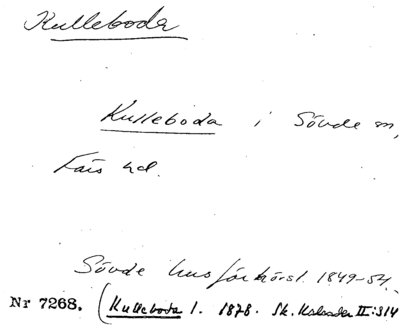 Kulleboda
Kulleboda i Sövde sn,
Färs hd.
Sövde husförhörsl. 1849-54.
Nr 7268. (Kulleboda l. 1878. Sk. Kalender II:314